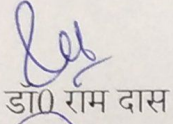 डॉ0 राम दास